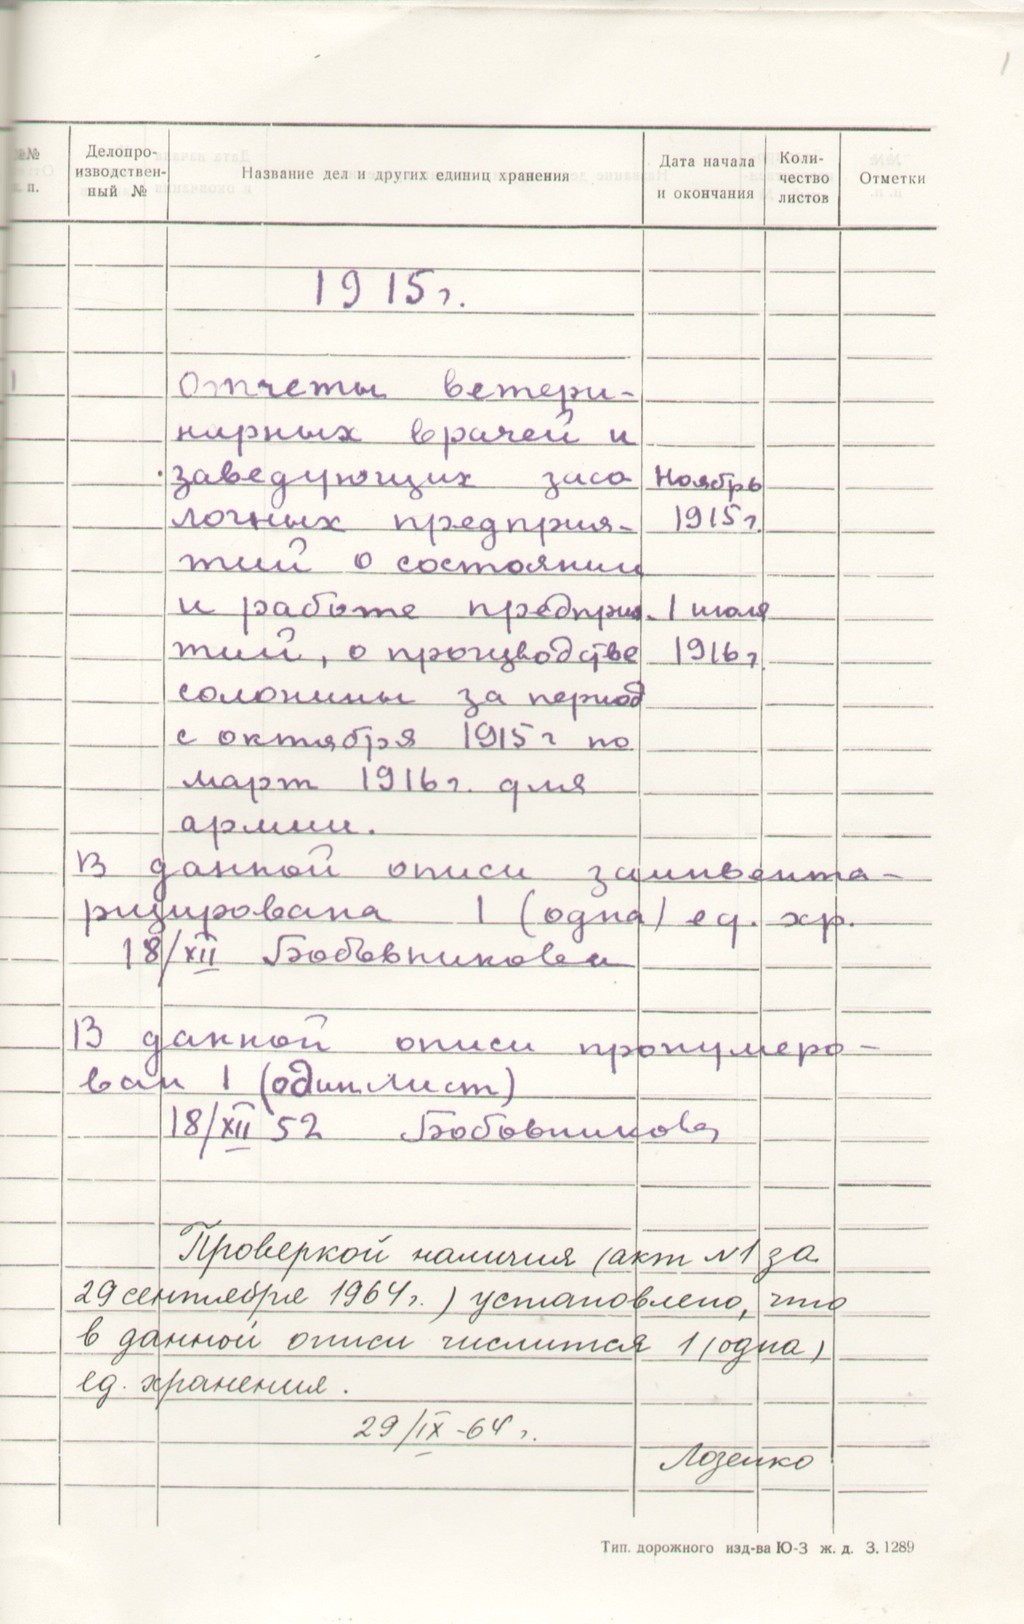 1
№№ п. п.
Делопроизводственный №
Название дел и других единиц хранения
Дата начала и окончания
Количество листов
Отметки
1915 г.
1
Отчеты ветери-
нарных врачей и
заведующих засо
Ноябрь
лочных предприя-
1915 г.
тий о состоянии
и работе предприя-
1 июля
тий, о производстве
1916 г.
солонины за период
с октября 1915 г по
март 1916 г. для
армии.
В данной описи заинвента-
ризирована 1 (одна) ед. хр.
18/XII Бобовникова
В данной описи пронумеро-
ван 1 (один лист)
18/XII 52 Бобовникова
Проверкой наличия (акт N1 за
29 сентября 1964 г.) установлено, что
в данной описи числится 1 (одна)
ед. хранения.
29/IX-64 г.
Лозенко
Тип. дорожного изд-ва Ю-З ж. д. З. 1289